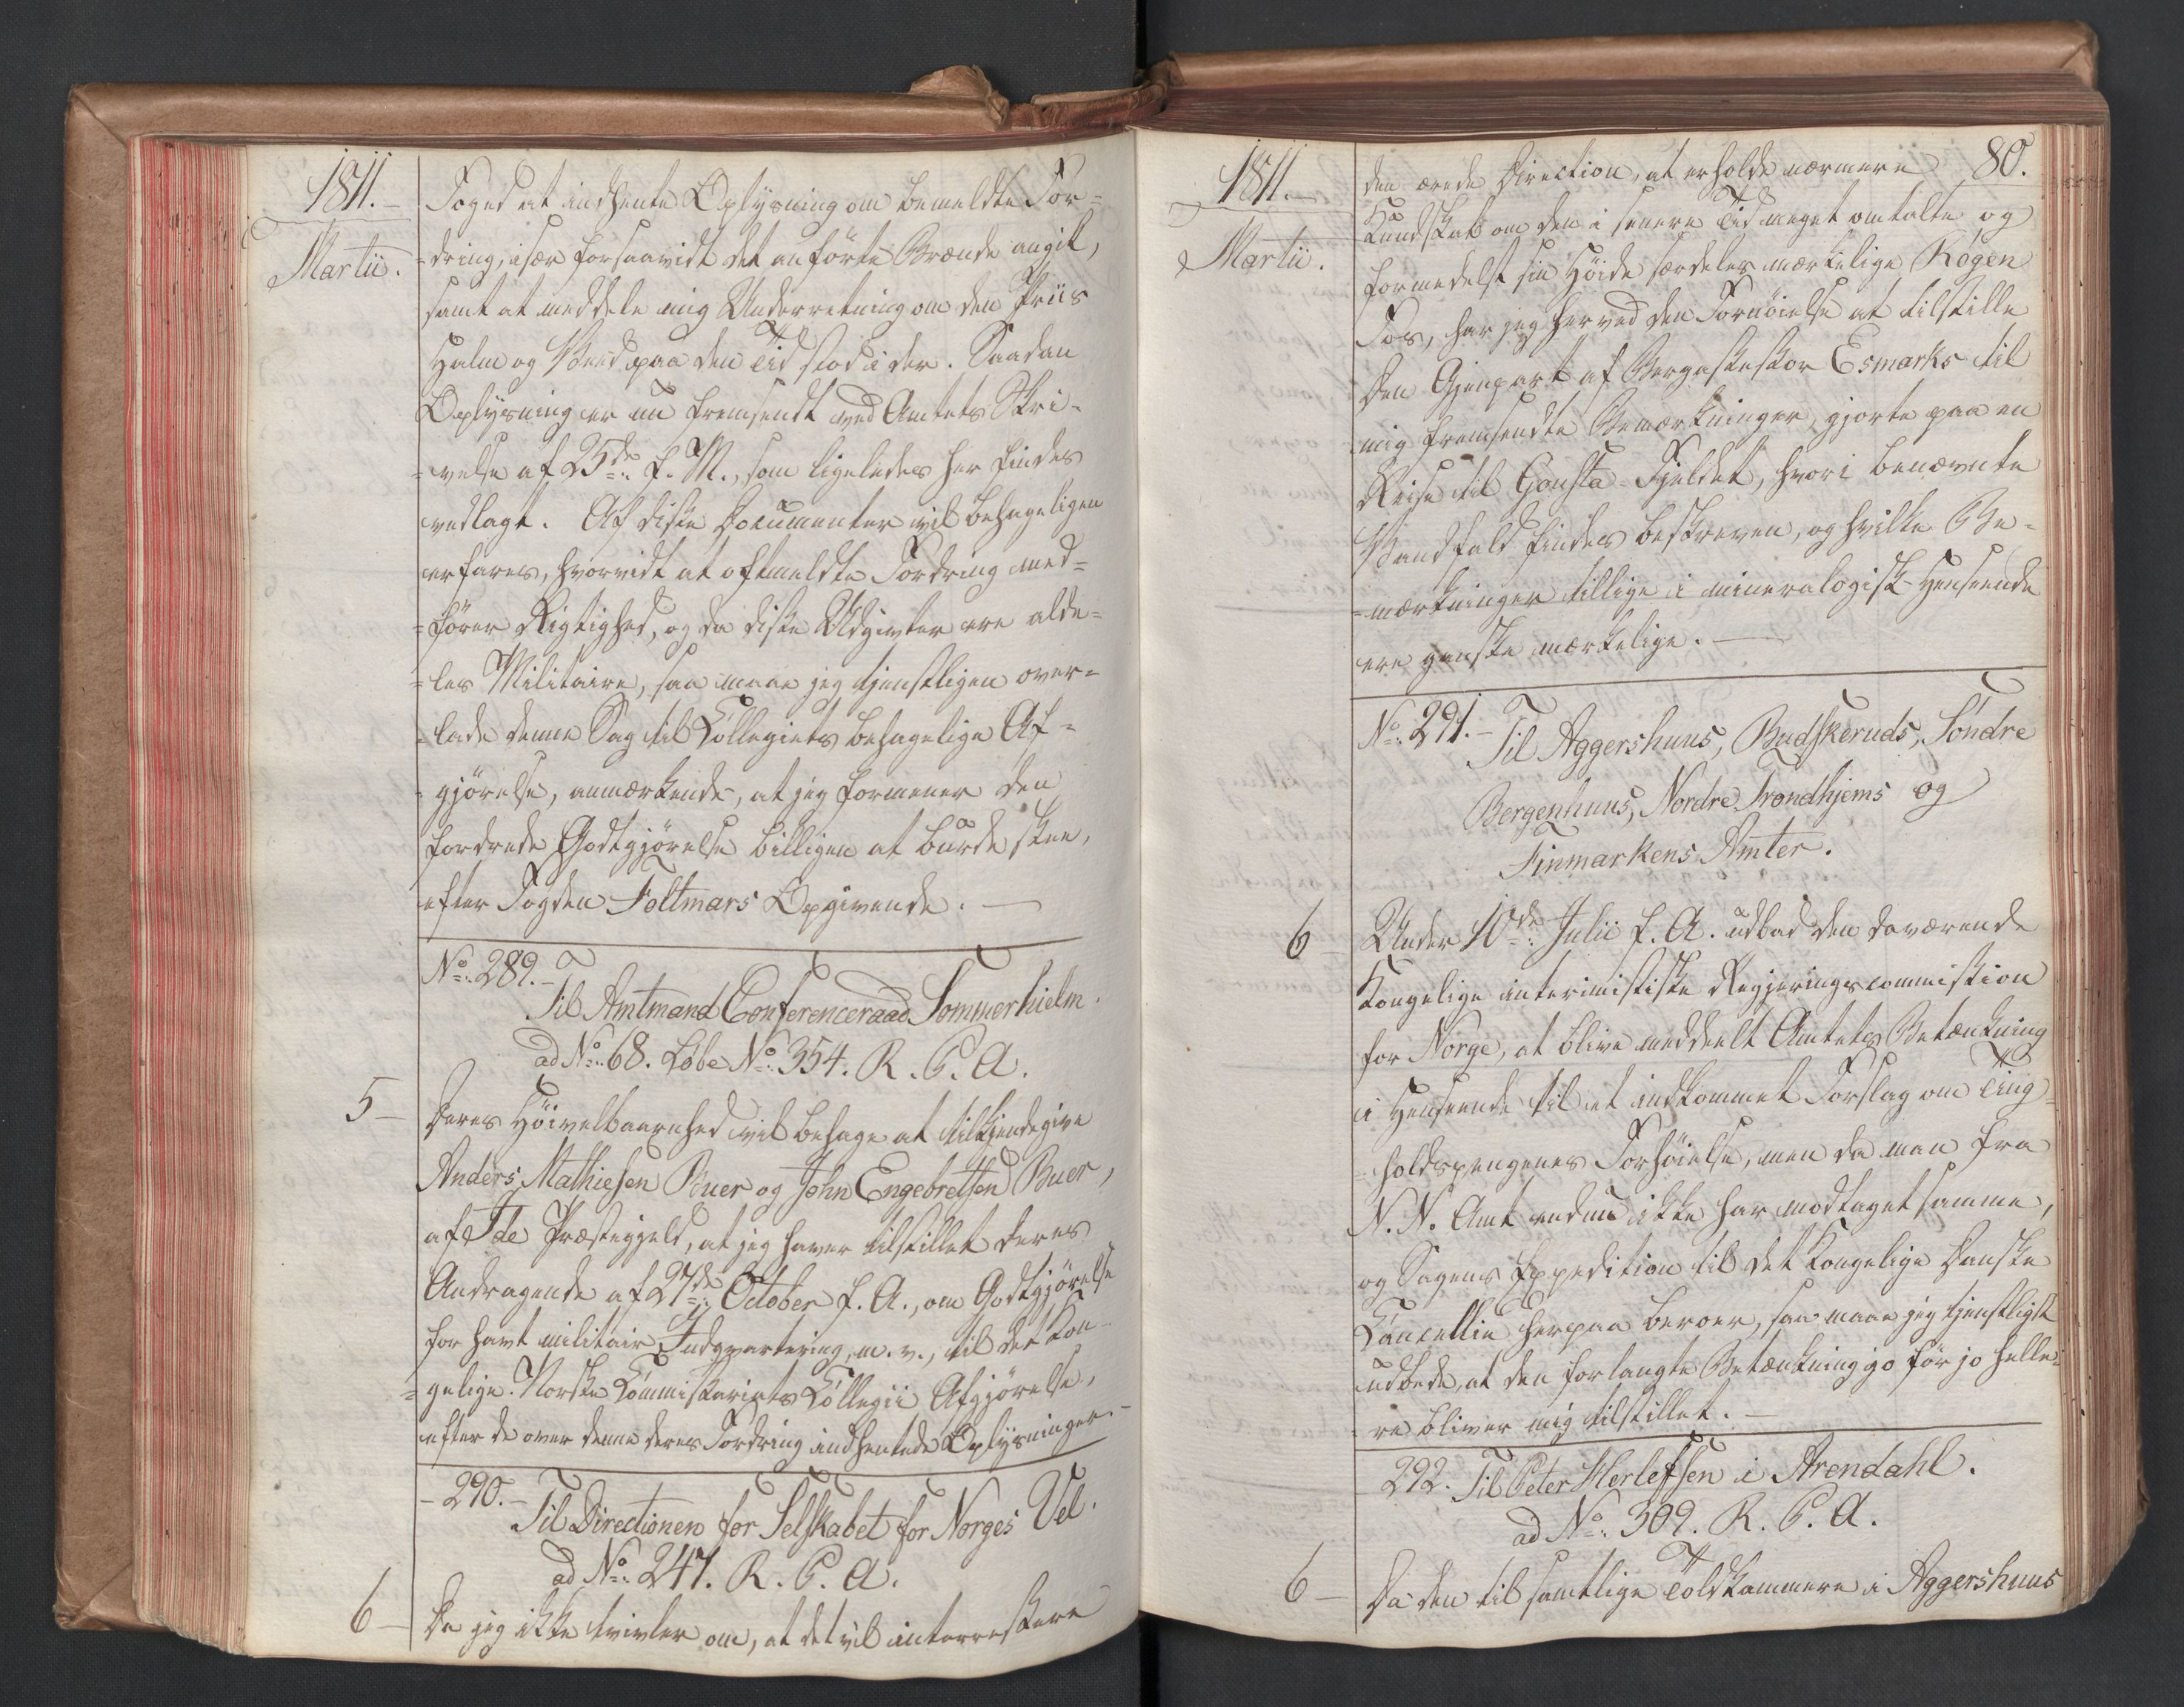 1811.
Martii.
Foged at indhente Oplysning om bemeldte For-
-dring, især forsaavidt det anførte Brænde angik,
samt at meddele mig Underretning om den Priis
Halm og Veed paa den Tid stod i der. Saadan
Oplysning er nu fremsendt ved Amtets Skri-
-velse af 25de f. M., som ligeledes her findes
vedlagt. Af disse Documenter vil behageligen
erfares, hvorvidt at oftmeldte Fordring med-
-fører Rigtighed, og da disse Udgivter ere alde-
-les Militaire, saa maae jeg tjenstligen over-
-lade denne Sag til Collegiets behagelige Af-
-gjørelse, anmærkende, at jeg formener den
fordrede Godtgjørelse billigen at burde skee,
efter Fogden Foltmars Opgivende.
No. 289.
Til Amtmand Conferenceraad Sommerhielm.
ad No. 68. Løbe No. 354. R. P. A.
5 Deres Høivelbaarnhed vil behage at tilkjendegive
Anders Mathiesen Buer og John Engebretsen Buer,
af Ide Præstegjeld, at jeg haver tilstillet deres
Andragende af 27de October f. A., om Godtgjørelse
for havt militair Indqvartering, m. v., til det Kon-
-gelige Norske Commissariats Collegii Afgjørelse,
efter de over denne deres Fordring indhentede Oplysninger.
- 290. -
Til Directionen for Selskabet for Norges Vel.
ad No. 247. R. P. A.
6 Da jeg ikke tvivler om, at det vil interressere
1811.
Martii.
80.
den ærede Direction, at erholde nærmere
Kundskab om den i senere Tid meget omtalte og
formedelst sin Høide særdeles mærkelige Røgen
Fos, har jeg herved den Fornøielse at tilstille
den Gjenpart af Bergassessor Esmarks til
mig fremsendte Bemærkninger, gjorte paa en
Reise til Gousta-Fjeldet, hvori benævnte
Vandfald findes beskreven, og hvilke Be-
-mærkninger tillige i mineralogisk Henseende
ere ganske mærkelige.
No. 291.
Til Aggershuus, Budskeruds, Søndre
Bergenhuus, Nordre Trondhjems og
Finmarkens Amter.
6 Under 10de Julii f. A. udbad den daværende
Kongelige interimistiske Regjeringscommission
for Norge, at blive meddeelt Amtets Betænkning
i Henseende til et indkommet Forslag om Ting-
-holdspengenes Forhøielse, men da man fra
N. N. Amt endnu ikke har modtaget samme,
og Sagens Expedition til det Kongelige Danske
Cancellie herpaa beroer, saa maae jeg tjenstligst
udbede, at den forlangte Betænkning jo før jo helle-
re bliver mig tilstillet.
292. Til Peter Herlefsen i Arendahl.
ad No. 309. R. P. A.
6 Da den til samtlige Toldkammere i Aggershuus